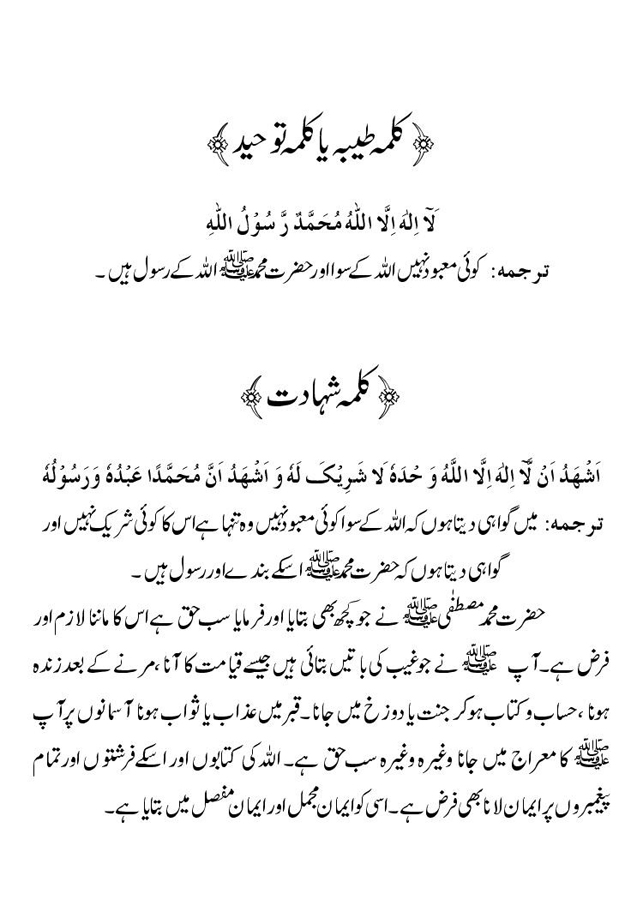 ﴿ کلمہ طیبہ یا کلمہ توحید ﴾
لَآ اِلٰہَ اِلَّا اللّٰہُ مُحَمَّدٌ رَّ سُوْلُ اللّٰہِ
ترجمہ: کوئی معبود نہیں اللہ کے سوا اور حضرت محمد ﷺ اللہ کے رسول ہیں ۔
﴿ کلمہ شہادت ﴾
اَشْھَدُ اَنْ لَّآ اِلٰہَ اِلَّا اللَّہُ وَ حْدَہٗ لَا شَرِیْکَ لَہٗ وَ اَشْھَدُ اَنَّ مُحَمَّدًا عَبْدُہٗ وَرَسُوْلُہٗ
ترجمہ: میں گواہی دیتا ہوں کہ اللہ کے سوا کوئی معبود نہیں وہ تنہا ہے اس کا کوئی شریک نہیں اور
گواہی دیتا ہوں کہ حضرت محمد ﷺ اسکے بندے اور رسول ہیں ۔
حضرت محمد مصطفٰی ﷺ نے جو کچھ بھی بتایا اور فرمایا سب حق ہے اس کا ماننا لازم اور
فرض ہے۔ آپ ﷺ نے جو غیب کی باتیں بتائی ہیں جیسے قیامت کا آنا ،مرنے کے بعد زندہ
ہونا ،حساب و کتاب ہو کر جنت یا دوزخ میں جانا۔ قبر میں عذاب یا ثواب ہونا آسمانوں پر آپ
ﷺ کا معراج میں جانا وغیرہ وغیرہ سب حق ہے۔ اللہ کی کتابوں اور اسکے فرشتوں اور تمام
پیغمبروں پر ایمان لانا بھی فرض ہے۔ اسی کو ایمان مجمل اور ایمان مفصل میں بتایا ہے۔